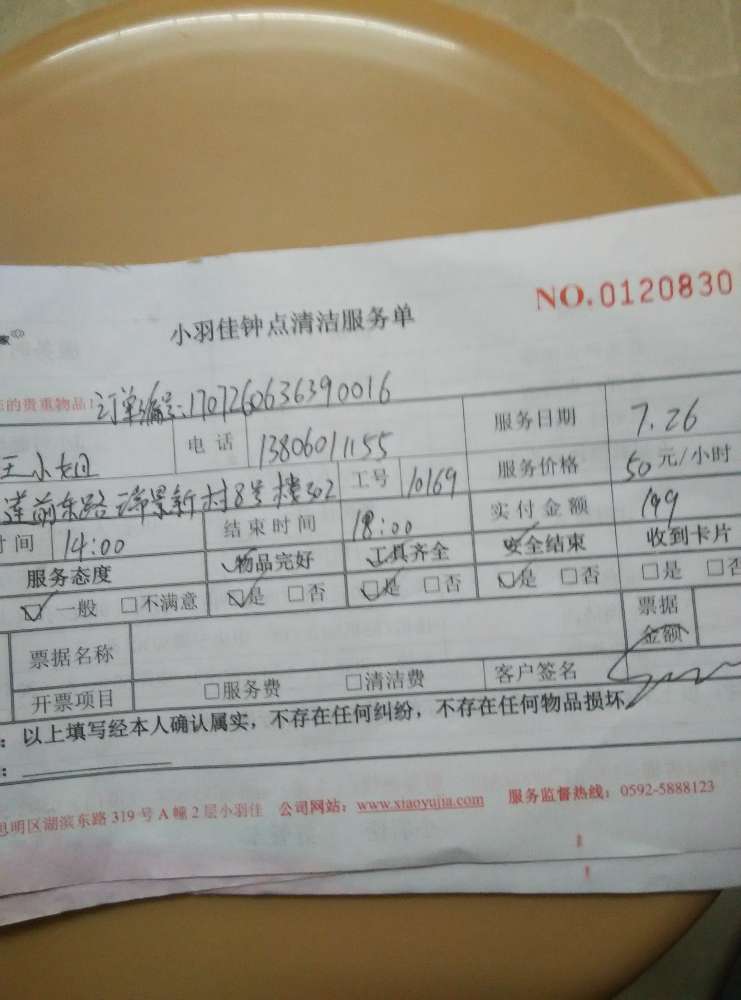 NO.0120830
家
小羽佳钟点清洁服务单
的贵重物品! 订单编号:1707260636390016
王小姐 电话 13806011155 服务日期 7.26
莲前东路瑞景新村8号楼302 工号 10169 服务价格 50元/小时
时间 14:00 结束时间 18:00 实付金额 199
服务态度 物品完好 工具齐全 安全结束 收到卡片
一般 □不满意 □是 □否 □是 □否 □是 □否 □是 □否
票据名称 票据金额
开票项目 □服务费 □清洁费 客户签名
:以上填写经本人确认属实,不存在任何纠纷,不存在任何物品损坏
:
明区湖滨东路319号A幢2层小羽佳 公司网站:www.xiaoyujia.com 服务监督热线:0592-5888123